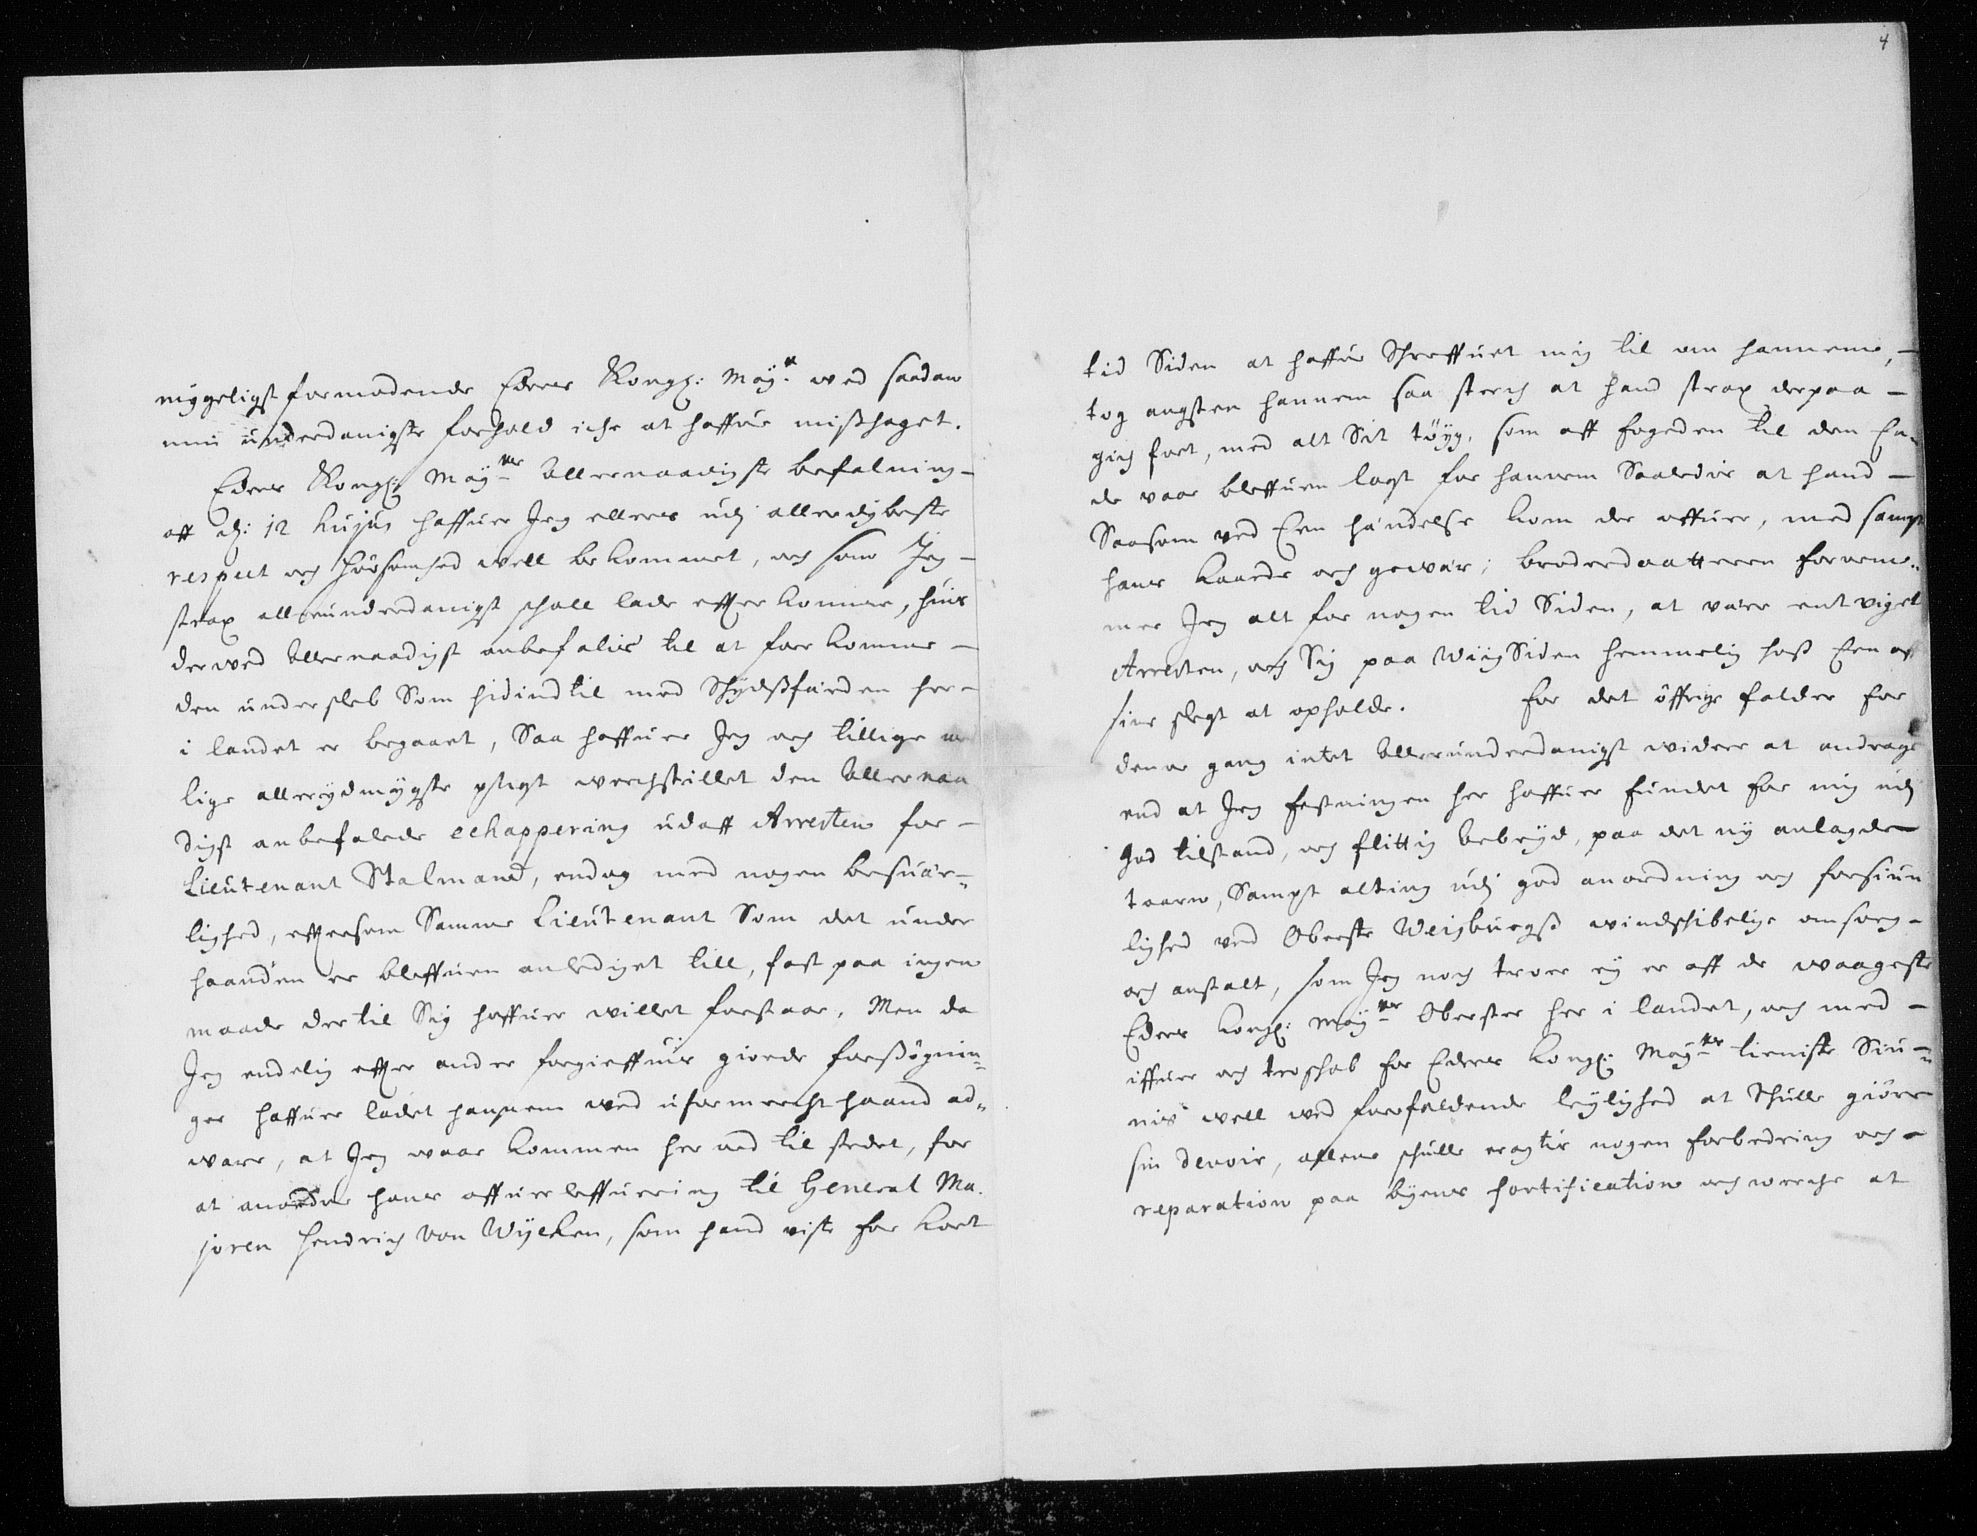 myggeligst formodende Eders Kongl: May:t ved saadan
min underdanigste forhold iche at haffue mishaget.
Eders Kongl: Maytz Allernaadigste befalning
aff d: 12 hujus haffuer Jeg ellers udj allerdybeste
respect och hørsomhed well bekommet, och som Jeg
strax allerunderdanigst schall lade effterkomme, huis
derved Allernaadigst anbefalis til at forekomme
den undersleb Som hidindtil med Skydsfærden her
i landet er begaaet, Saa haffuer Jeg och tillige
lige allerydmygste pligt werchstillet den Allernaa
digst anbefalede echappering udaff Arresten for
Lieutenant Stalmand, endog med nogen besuær-
lighed, effttersom Samme Lieutenant Som det under
haanden er bleffuen anlediget till, fast paa ingen
maade dertil Sig haffuer willet forstaae, Men da
Jeg endelig effter andre forgieffuis giorde forsøgnin-
ger haffuer ladet hannem ved uformercht haand ad-
ware, at Jeg waar kommen her ned til stedet, for
at anordne hans offuerleffuering til General Ma-
joren Hendrich Von Wylcken, som hand viste for kort
4
tid Siden at haffue Schreffuet mig til om hannem,
tog angsten hannem saa sterch at hand strax derpaa
gich fort, med alt Sit tøyg, som aff fogeden til den En-
de vaar bleffuen lagt for hannem Saaledis at hand
Saasom ved Een hændelse kom der offuer, med sampt
hans kaarde och gewær; broderdaatteren fornem-
mer Jeg alt for nogen tid Siden, at være entviget
Arresten, och Sig paa WiigSiden hemmelig hoss Een aff
sine slegt at opholde. For det øffrige falder for
denne gang intet Allerunderdanigst widere at andrage
end at Jeg festningen her haffuer fundet for mig udj
god tilstand, och flittig bebeyd, paa det ny anlagde
taarn, Sampt alting udj god anordning och forsiun
lighed ved Oberste Weigburgss windschibelige omsorg
och anstalt, som Jeg noch troer ey er aff de waageste
Eders Kongl: Maytz Oberster her i landet, och med
iffuer och troschab for Eders Kongl: Maytz tieniste Siu-
nis well ved forefaldende leylighed at schulle giøre
sin devoir, ellers schulle eragtis nogen forbedring och
reparation paa byens fortification och werche at